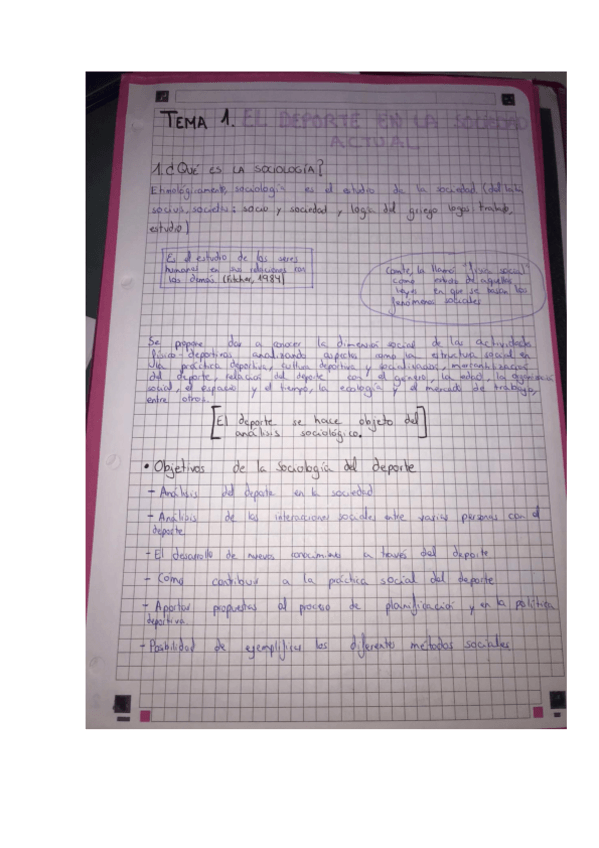 TEMA 1. EL DEPORTE EN LA SOCIEDAD
ACTUAL
1. ¿QUÉ ES LA SOCIOLOGÍA?
Etimológicamente, sociología es el estudio de la sociedad (del latín
socius, societas: socio y sociedad y logía del griego logos: tratado,
estudio)
Es el estudio de los seres
humanos en sus relaciones con
los demás (Fitcher, 1984)
Comte, la llamó "física social"
como de aquellas
leyes en que se basan los
fenómenos sociales
Se propone dar a conocer la dimensión social de las actividades
físico-deportivas analizando aspectos como la estructura social en
la práctica deportiva, cultura deportiva y socializadora, mercantilización
del deporte, relación del deporte con el género, la edad, la
social, el espacio y el tiempo, la ecología y el mercado de trabajo,
entre otros.
[El deporte se hace objeto del
análisis sociológico.]
• Objetivos de la Sociología del deporte
- Análisis del deporte en la sociedad
- Análisis de las interacciones sociales entre varias personas con el
deporte
- El desarrollo de nuevos conocimientos a través del deporte
- Cómo contribuir a la práctica social del deporte
- Aportar propuestas al proceso de planificación y en la política
deportiva
- Posibilidad de ejemplificar los diferentes métodos sociales